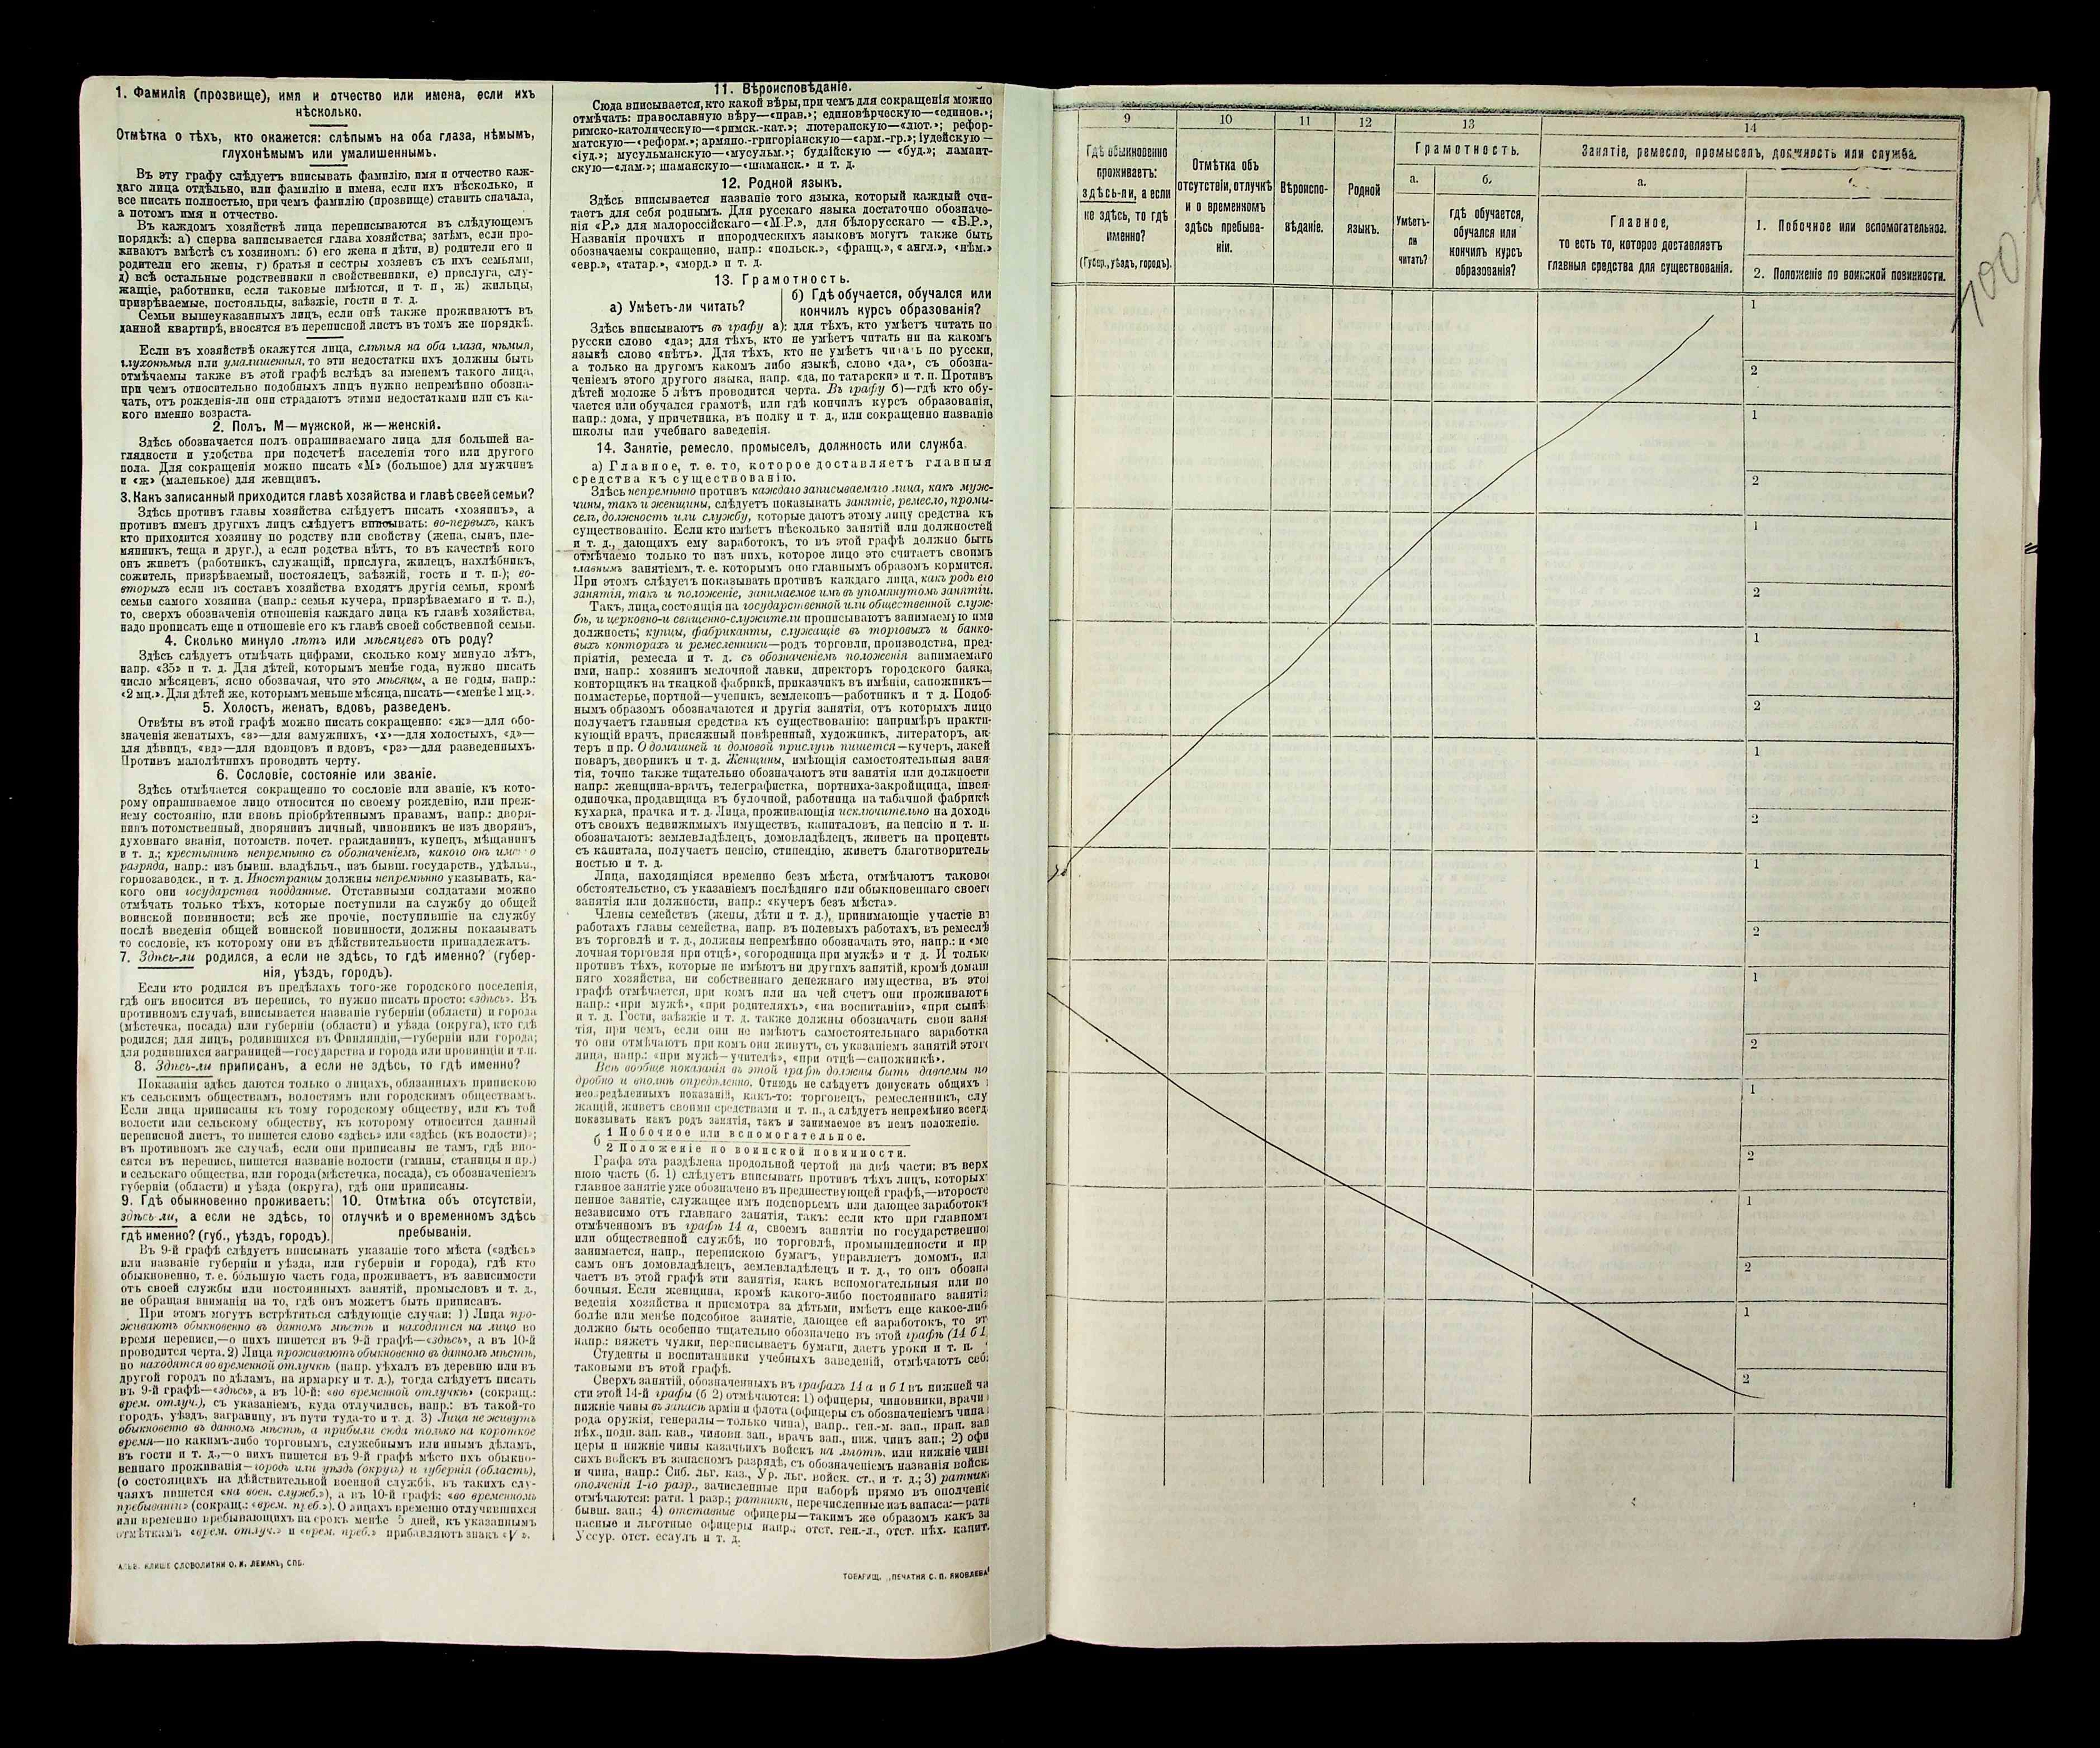 1. Фамилія (прозвище), имя и отчество или имена, если ихъ
нѣсколько.
Отмѣтка о тѣхъ, кто окажется: слѣпымъ на оба глаза, нѣмымъ,
глухонѣмымъ или умалишеннымъ.
Въ эту графу слѣдуетъ вписывать фамилію, имя и отчество каж-
даго лица отдѣльно, или фамилію и имена, если ихъ нѣсколько, и
все писать полностью, при чемъ фамилію (прозвище) ставить сначала,
а потомъ имя и отчество.
Въ каждомъ хозяйствѣ лица переписываются въ слѣдующемъ
порядкѣ: а) сперва записывается глава хозяйства; затѣмъ, если про-
живаютъ вмѣстѣ съ хозяиномъ: б) его жена и дѣти, в) родители его и
родители его жены, г) братья и сестры хозяевъ съ ихъ семьями,
д) всѣ остальные родственники и свойственники, е) прислуга, слу-
жащіе, работники, если таковые имѣются, и т. п, ж) жильцы,
призрѣваемые, постояльцы, заѣзжіе, гости и т. п.
Семьи вышеуказанныхъ лицъ, если онѣ также проживаютъ въ
данной квартирѣ, вносятся въ переписной листъ въ томъ же порядкѣ.
Если въ хозяйствѣ окажутся лица, слѣпыя на оба глаза, нѣмыя,
глухонѣмыя или умалишенныя, то эти недостатки ихъ должны быть
отмѣчаемы также въ этой графѣ вслѣдъ за именемъ такого лица,
при чемъ относительно подобныхъ лицъ нужно непремѣнно обозна-
чать, отъ рожденія-ли они страдаютъ этими недостатками или съ ка-
кого именно возраста.
2. Полъ. М—мужской, ж—женскій.
Здѣсь обозначается полъ опрашиваемаго лица для большей на-
глядности и удобства при подсчетѣ населенія того или другого
пола. Для сокращенія можно писать «М» (большое) для мужчинъ
и «ж» (маленькое) для женщинъ.
3. Какъ записанный приходится главѣ хозяйства и главѣ своей семьи?
Здѣсь противъ главы хозяйства слѣдуетъ писать «хозяинъ», а
противъ именъ другихъ лицъ слѣдуетъ вписывать: во-первыхъ, какъ
кто приходится хозяину по родству или свойству (жена, сынъ, пле-
мянникъ, теща и друг.), а если родства нѣтъ, то въ качествѣ кого
онъ живетъ (работникъ, служащій, прислуга, жилецъ, нахлѣбникъ,
сожитель, призрѣваемый, постоялецъ, заѣзжій, гость и т. п.); во-
вторыхъ если въ составъ хозяйства входятъ другія семьи, кромѣ
семьи самого хозяина (напр: семья кучера, призрѣваемаго и т. п.),
то, сверхъ обозначенія отношенія каждаго лица къ главѣ хозяйства,
надо прописать еще и отношеніе его къ главѣ своей собственной семьи.
4. Сколько минуло лѣтъ или мѣсяцевъ отъ роду?
Здѣсь слѣдуетъ отмѣчать цифрами, сколько кому минуло лѣтъ,
напр. «35» и т. д. Для дѣтей, которымъ менѣе года, нужно писать
число мѣсяцевъ, ясно обозначая, что это мѣсяцы, а не годы, напр.:
«2 мц.». Для дѣтей же, которымъ меньше мѣсяца, писать—«менѣе 1 мц.».
5. Холостъ, женатъ, вдовъ, разведенъ.
Отвѣты въ этой графѣ можно писать сокращенно: «ж»—для обо-
значенія женатыхъ, «з»—для замужнихъ, «х»—для холостыхъ, «д»—
для дѣвицъ, «вд»—для вдовцовъ и вдовъ, «рз»—для разведенныхъ.
Противъ малолѣтнихъ проводить черту.
6. Сословіе, состояніе или званіе.
Здѣсь отмѣчается сокращенно то сословіе или званіе, къ кото-
рому опрашиваемое лицо относится по своему рожденію, или преж-
нему состоянію, или вновь пріобрѣтеннымъ правамъ, напр: дворя-
нинъ потомственный, дворянинъ личный, чиновникъ не изъ дворянъ,
духовнаго званія, потомств. почет. гражданинъ, купецъ, мѣщанинъ
и т. д.; крестьянинъ непремѣнно съ обозначеніемъ, какого онъ именно
разряда, напр.: изъ бывш. владѣльч., изъ бывш. государств., удѣльн.,
горнозаводск., и т. д. Иностранцы должны непремѣнно указывать, ка-
кого они государства подданные. Отставными солдатами можно
отмѣчать только тѣхъ, которые поступили на службу до общей
воинской повинности; всѣ же прочіе, поступившіе на службу
послѣ введенія общей воинской повинности, должны показывать
то сословіе, къ которому они въ дѣйствительности принадлежатъ.
7. Здѣсь-ли родился, а если не здѣсь, то гдѣ именно? (губер-
нія, уѣздъ, городъ).
Если кто родился въ предѣлахъ того-же городского поселенія,
гдѣ онъ вносится въ перепись, то нужно писать просто: «здѣсь». Въ
противномъ случаѣ, вписывается названіе губерніи (области) и города
(мѣстечка, посада) или губерніи (области) и уѣзда (округа), кто гдѣ
родился; для лицъ, родившихся въ Финляндіи,—губерніи или города;
для родившихся заграницей—государства и города или провинціи и т.п.
8. Здѣсь-ли приписанъ, а если не здѣсь, то гдѣ именно?
Показанія здѣсь даются только о лицахъ, обязанныхъ припискою
къ сельскимъ обществамъ, волостямъ или городскимъ обществамъ.
Если лица приписаны къ тому городскому обществу, или къ той
волости или сельскому обществу, къ которому относится данный
переписной листъ, то пишется слово «здѣсь» или «здѣсь (къ волости)»;
въ противномъ же случаѣ, если они приписаны не тамъ, гдѣ вно-
сятся въ перепись, пишется названіе волости (гмины, станицы и пр.)
и сельскаго общества, или города (мѣстечка, посада), съ обозначеніемъ
губерніи (области) и уѣзда (округа), гдѣ они приписаны.
9. Гдѣ обыкновенно проживаетъ:
здѣсь-ли, а если не здѣсь, то
гдѣ именно? (губ., уѣздъ, городъ).
10. Отмѣтка объ отсутствіи,
отлучкѣ и о временномъ здѣсь
пребываніи.
Въ 9-й графѣ слѣдуетъ вписывать указаніе того мѣста («здѣсь»
или названіе губерніи и уѣзда, или губерніи и города), гдѣ кто
обыкновенно, т. е. бо́льшую часть года, проживаетъ, въ зависимости
отъ своей службы или постоянныхъ занятій, промысловъ и т. д.,
не обращая вниманія на то, гдѣ онъ можетъ быть приписанъ.
При этомъ могутъ встрѣтиться слѣдующіе случаи: 1) Лица про-
живаютъ обыкновенно въ данномъ мѣстѣ и находятся на лицо во
время переписи,—о нихъ пишется въ 9-й графѣ—«здѣсь», а въ 10-й
проводится черта. 2) Лица проживаютъ обыкновенно въ данномъ мѣстѣ,
но находятся во временной отлучкѣ (напр. уѣхалъ въ деревню или въ
другой городъ по дѣламъ, на ярмарку и т. д.), тогда слѣдуетъ писать
въ 9-й графѣ—«здѣсь», а въ 10-й: «во временной отлучкѣ» (сокращ.:
врем. отлуч.), съ указаніемъ, куда отлучились, напр.: въ такой-то
городъ, уѣздъ, заграницу, въ пути туда-то и т. д. 3) Лица не живутъ
обыкновенно въ данномъ мѣстѣ, а прибыли сюда только на короткое
время—по какимъ-либо торговымъ, служебнымъ или инымъ дѣламъ,
въ гости и т. д.,—о нихъ пишется въ 9-й графѣ мѣсто ихъ обыкно-
веннаго проживанія—городъ или уѣздъ (округъ) и губернія (область),
(о состоящихъ на дѣйствительной военной службѣ, въ такихъ слу-
чаяхъ пишется «на воен. служб.»), а въ 10-й графѣ: «во временномъ
пребываніи» (сокращ.: «врем. преб.»). О лицахъ временно отлучившихся
или временно пребывающихъ на срокъ менѣе 5 дней, къ указаннымъ
отмѣткамъ «врем. отлуч.» и «врем. преб.» прибавляютъ знакъ «V».
КЛИШЕ СЛОВОЛИТНИ О. И. ЛЕМАНЪ, СПБ.
11. Вѣроисповѣданіе.
Сюда вписывается, кто какой вѣры, при чемъ для сокращенія можно
отмѣчать: православную вѣру—«прав.»; единовѣрческую—«единов.»;
римско-католическую—«римск.-кат.»; лютеранскую—«лют.»; рефор-
матскую—«реформ.»; армяно.-григоріанскую—«арм.-гр.»; іудейскую—
«іуд.»; мусульманскую—«мусульм.»; буддійскую — «буд.»; ламаит-
скую—«лам.»; шаманскую—«шаманск.» и т. д.
12. Родной языкъ.
Здѣсь вписывается названіе того языка, который каждый счи-
таетъ для себя роднымъ. Для русскаго языка достаточно обозначе-
нія «Р.» для малороссійскаго—«М.Р.», для бѣлорусскаго — «Б.Р.»,
Названія прочихъ и инородческихъ языковъ могутъ также быть
обозначаемы сокращенно, напр.: «польск.», «франц.», «англ.», «нѣм.»
«евр.», «татар.», «морд.» и т. д.
13. Грамотность.
а) Умѣетъ-ли читать?
б) Гдѣ обучается, обучался или
кончилъ курсъ образованія?
Здѣсь вписываютъ въ графу а): для тѣхъ, кто умѣетъ читать по
русски слово «да»; для тѣхъ, кто не умѣетъ читать ни на какомъ
языкѣ слово «нѣтъ». Для тѣхъ, кто не умѣетъ читать по русски,
а только на другомъ какомъ либо языкѣ, слово «да», съ обозна-
ченіемъ этого другого языка, напр. «да, по татарски» и т. п. Противъ
дѣтей моложе 5 лѣтъ проводится черта. Въ графу б)—гдѣ кто обу-
чается или обучался грамотѣ, или гдѣ кончилъ курсъ образованія,
напр.: дома, у причетника, въ полку и т. д., или сокращенно названіе
школы или учебнаго заведенія.
14. Занятіе, ремесло, промыселъ, должность или служба.
а) Главное, т. е. то, которое доставляетъ главныя
средства къ существованію.
Здѣсь непремѣнно противъ каждаго записываемаго лица, какъ муж-
чины, такъ и женщины, слѣдуетъ показывать занятіе, ремесло, промы-
селъ, должность или службу, которые даютъ этому лицу средства къ
существованію. Если кто имѣетъ нѣсколько занятій или должностей
и т. д., дающихъ ему заработокъ, то въ этой графѣ должно быть
отмѣчаемо только то изъ нихъ, которое лицо это считаетъ своимъ
главнымъ занятіемъ, т. е. которымъ оно главнымъ образомъ кормится.
При этомъ слѣдуетъ показывать противъ каждаго лица, какъ родъ его
занятія, такъ и положеніе, занимаемое имъ въ упомянутомъ занятіи.
Такъ, лица, состоящія на государственной или общественной служ-
бѣ, и церковно-и священно-служители прописываютъ занимаемую ими
должность; купцы, фабриканты, служащіе въ торговыхъ и банко-
выхъ конторахъ и ремесленники—родъ торговли, производства, пред-
пріятія, ремесла и т. д. съ обозначеніемъ положенія занимаемаго
ими, напр.: хозяинъ мелочной лавки, директоръ городского банка,
конторщикъ на ткацкой фабрикѣ, приказчикъ въ имѣніи, сапожникъ—
подмастерье, портной—ученикъ, землекопъ—работникъ и т д. Подоб-
нымъ образомъ обозначаются и другія занятія, отъ которыхъ лицо
получаетъ главныя средства къ существованію: напримѣръ практи-
кующій врачъ, присяжный повѣренный, художникъ, литераторъ, ак-
теръ и пр. О домашней и домовой прислугѣ пишется—кучеръ, лакей
поваръ, дворникъ и т. д. Женщины, имѣющія самостоятельныя заня-
тія, точно также тщательно обозначаютъ эти занятія или должности
напр.: женщина-врачъ, телеграфистка, портниха-закройщица, швея-
одиночка, продавщица въ булочной, работница на табачной фабрикѣ
кухарка, прачка и т. д. Лица, проживающія исключительно на доходъ
отъ своихъ недвижимыхъ имуществъ, капиталовъ, на пенсію и т. п.
обозначаютъ: землевладѣлецъ, домовладѣлецъ, живетъ на проценты
съ капитала, получаетъ пенсію, стипендію, живетъ благотворитель-
ностью и т. д.
Лица, находящіяся временно безъ мѣста, отмѣчаютъ таковое
обстоятельство, съ указаніемъ послѣдняго или обыкновеннаго своего
занятія или должности, напр.: «кучеръ безъ мѣста».
Члены семействъ (жены, дѣти и т. д.), принимающіе участіе въ
работахъ главы семейства, напр. въ полевыхъ работахъ, въ ремеслѣ
въ торговлѣ и т. д., должны непремѣнно обозначать это, напр.: и «ме
лочная торговля при отцѣ», «огородница при мужѣ» и т д. И только
противъ тѣхъ, которые не имѣютъ ни другихъ занятій, кромѣ домаш
няго хозяйства, ни собственнаго денежнаго имущества, въ этой
графѣ отмѣчается, при комъ или на чей счетъ они проживаютъ
напр.: «при мужѣ», «при родителяхъ», «на воспитаніи», «при сынѣ
и т. д. Гости, заѣзжіе и т. д. также должны обозначать свои заня
тія, при чемъ, если они не имѣютъ самостоятельнаго заработка
то они отмѣчаютъ при комъ они живутъ, съ указаніемъ занятій этого
лица, напр.: «при мужѣ—учителѣ», «при отцѣ—сапожникѣ».
Всѣ вообще показанія въ этой графѣ должны быть даваемы по
дробно и вполнѣ опредѣленно. Отнюдь не слѣдуетъ допускать общихъ и
неопредѣленныхъ показаній, какъ-то: торговецъ, ремесленникъ, слу
жащій, живетъ своими средствами и т. п., а слѣдуетъ непремѣнно всегда
показывать какъ родъ занятія, такъ и занимаемое въ немъ положеніе.
б 1 Побочное или вспомогательное.
2 Положеніе по воинской повинности.
Графа эта раздѣлена продольной чертой на двѣ части: въ верх
нюю часть (б. 1) слѣдуетъ вписывать противъ тѣхъ лицъ, которыхъ
главное занятіе уже обозначено въ предшествующей графѣ,—второсте
пенное занятіе, служащее имъ подспорьемъ или дающее заработокъ
независимо отъ главнаго занятія, такъ: если кто при главномъ
отмѣченномъ въ графѣ 14 а, своемъ занятіи по государственной
или общественной службѣ, по торговлѣ, промышленности и пр
занимается, напр., перепискою бумагъ, управляетъ домомъ, ил
самъ онъ домовладѣлецъ, землевладѣлецъ и т. д., то онъ обозна
чаетъ въ этой графѣ эти занятія, какъ вспомогательныя или по
бочныя. Если женщина, кромѣ какого-либо постояннаго занятія
веденія хозяйства и присмотра за дѣтьми, имѣетъ еще какое-либ
болѣе или менѣе подсобное занятіе, дающее ей заработокъ, то эт
должно быть особенно тщательно обозначено въ этой графѣ (14 б 1,
напр.: вяжетъ чулки, переписываетъ бумаги, даетъ уроки и т. п.
Студенты и воспитанники учебныхъ заведеній, отмѣчаютъ себя
таковыми въ этой графѣ.
Сверхъ занятій, обозначенныхъ въ графахъ 14 а и б 1 въ нижней ча
сти этой 14-й графы (б 2) отмѣчаются: 1) офицеры, чиновники, врачи и
нижніе чины въ запасѣ арміи и флота (офицеры съ обозначеніемъ чина и
рода оружія, генералы—только чина), напр., ген.-м. зап., прап. зап
пѣх., подп. зап. кав., чиновн. зап., врачъ зап., ниж. чинъ зап.; 2) офи
церы и нижніе чины казачьихъ войскъ на льготѣ, или нижніе чины
сихъ войскъ въ запасномъ разрядѣ, съ обозначеніемъ названія войска
и чина, напр.: Сиб. льг. каз., Ур. льг. войск. ст., и т. д.; 3) ратники
ополченія 1-го разр., зачисленные при наборѣ прямо въ ополченіе
отмѣчаются: ратн. 1 разр.; ратники, перечисленные изъ запаса:—ратн
бывш. зап.; 4) отставные офицеры—такимъ же образомъ какъ за
пасные и льготные офицеры напр., отст. ген.-л., отст. пѣх. капит.
Уссур. отст. есаулъ и т. д.
ТОВАРИЩ. „ПЕЧАТНЯ С. П. ЯКОВЛЕВА"
9
10
11
12
13
14
Гдѣ обыкновенно
проживаетъ:
здѣсь-ли, а если
не здѣсь, то гдѣ
именно?
(Губер., уѣздъ, городъ).
Отмѣтка объ
отсутствіи, отлучкѣ
и о временномъ
здѣсь пребыва-
ніи.
Вѣроиспо-
вѣданіе.
Родной
языкъ.
Грамотность.
а.
Умѣетъ-
ли
читать?
б.
гдѣ обучается,
обучался или
кончилъ курсъ
образованія?
Занятіе, ремесло, промыселъ, должность или служба.
а.
Главное,
то есть то, которое доставляетъ
главныя средства для существованія.
1. Побочное или вспомогательное.
2. Положеніе по воинской повинности.
700
1
2
1
2
1
2
1
2
1
2
1
2
1
2
1
2
1
2
1
2